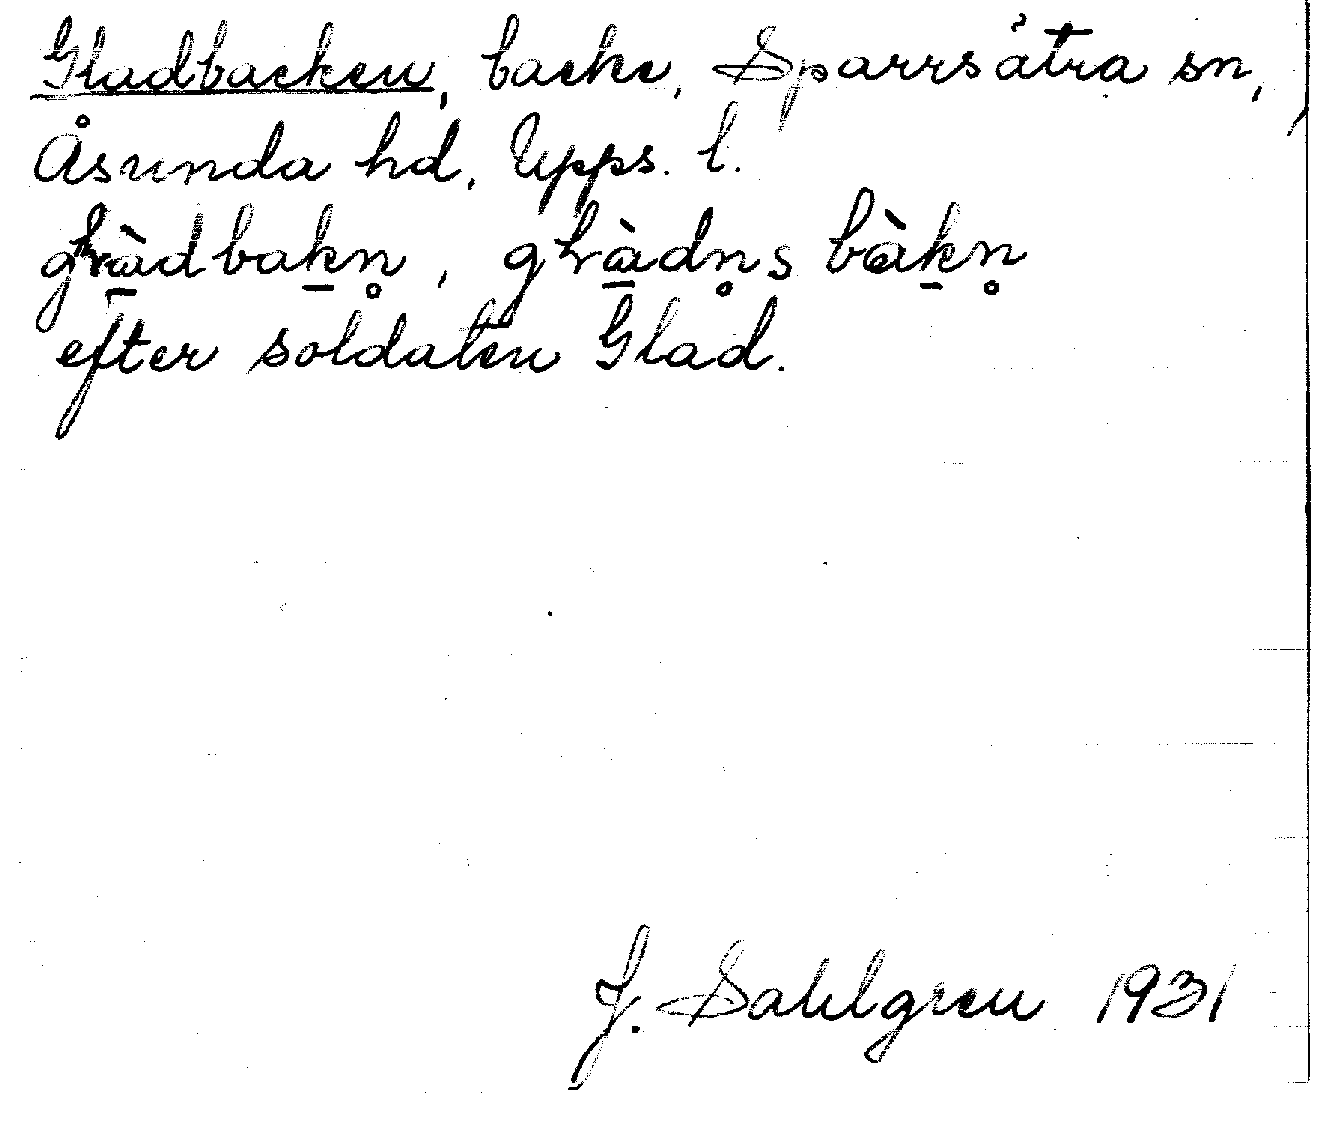 Gladbacken, backe, Sparrsätra sn,
Åsunda hd, Upps. l.
gɭà̱dbaḵn̥, gɭà̱dn̥s bàḵn̥
efter soldaten Glad.
J. Sahlgren 1931